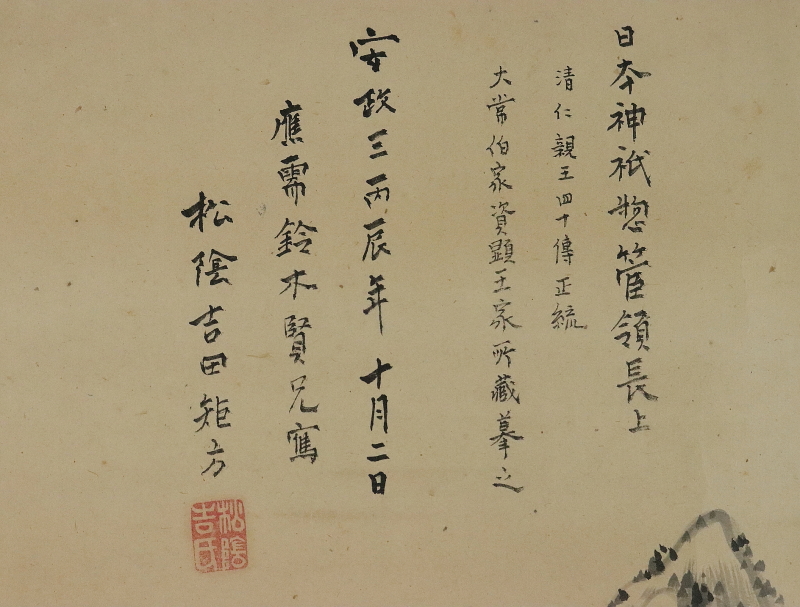 日本神祇惣管領長上
清仁親王四十傳正統
大常伯家資顕王家所藏摹之
安政三丙辰年十月二日
應需鈴木賢兄寫
松陰吉田矩方
松陰
吉氏